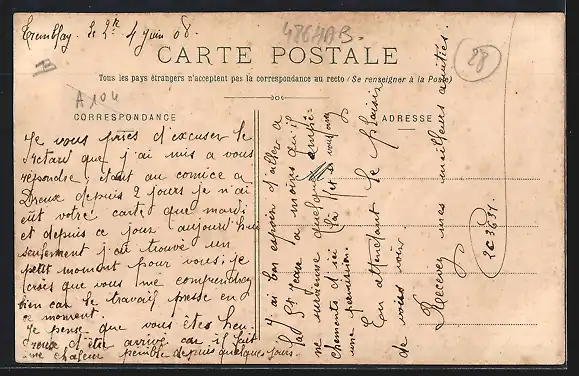 Tremblay. le 2 4 juin 08.
486HAB.
28
CARTE POSTALE
Tous les pays étrangers n'acceptent pas la correspondance au recto (Se renseigner à la Poste)
A104
CORRESPONDANCE
ADRESSE
Je vous pries d'excuser le
retard que j'ai mis a vous
repondre, étant au comice a
Dreux depuis 2 jours je n'ai
eut votre carte que mardi
et depuis ce jour aujourd'hui
seulement j'ai trouvé un
petit moment pour vous. je
crois que vous me comprendrez
bien car le travail presse en
ce moment.
Je pense que vous êtes heu-
reux d'être arrivé car il fait
une chaleur penible depuis quelques jours.
J'ai bon espoin d'aller a
la St Jean a moins qu'il
ne survienne quelque empêche-
chements d'ici là et vous
une permission.
En attendant le plaisir
de vous voir.
Recevez mes meilleurs amitiés.
2C3631.